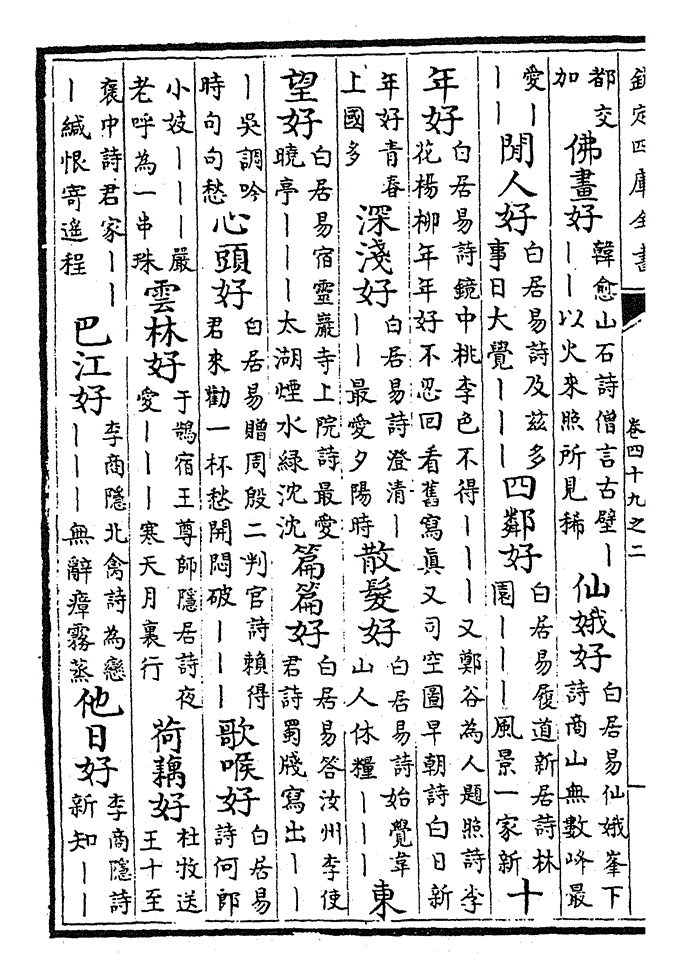 欽定四庫全書 卷四十九之二 一
都交加佛畫好韓愈山石詩僧言古壁丨丨丨以火來照所見稀仙娥好白居易仙娥峯下詩商山無數峰最
愛丨丨丨閒人好白居易詩及茲多事日大覺丨丨丨四鄰好白居易履道新居詩林園丨丨丨風景一家新十
年好白居易詩鏡中桃李色不得丨丨丨又鄭谷為人題照詩李花楊柳年年好不忍回看舊寫真又司空圖早朝詩白日新
年好青春上國多深淺好白居易詩澄清丨丨丨最愛夕陽時散髮好白居易詩始覺韋山人休糧丨丨丨東
望好白居易宿靈巖寺上院詩最愛曉亭丨丨丨太湖煙水綠沈沈篇篇好白居易答汝州李使君詩蜀牋寫出丨丨
丨吳調吟時句句愁心頭好白居易贈周殷二判官詩賴得君來勸一杯愁開悶破丨丨丨歌喉好白居易詩何郎
小妓丨丨丨嚴老呼為一串珠雲林好于鵠宿王尊師隱居詩夜愛丨丨丨寒天月裏行荷藕好杜牧送王十至
褒中詩君家丨丨丨緘恨寄遙程巴江好李商隱北禽詩為戀丨丨丨無辭瘴霧蒸他日好李商隱詩新知丨丨